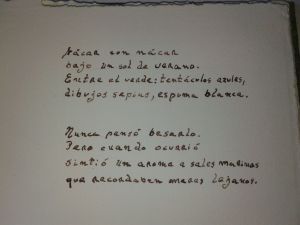 Nácar con nácar
bajo un sol de verano.
Entre el verde: tentáculos azules,
dibujos sepias, espuma blanca.
Nunca pensó besarlo.
Pero cuando ocurrió
sintió un aroma a sales marinas
que recordaban mares lejanos.